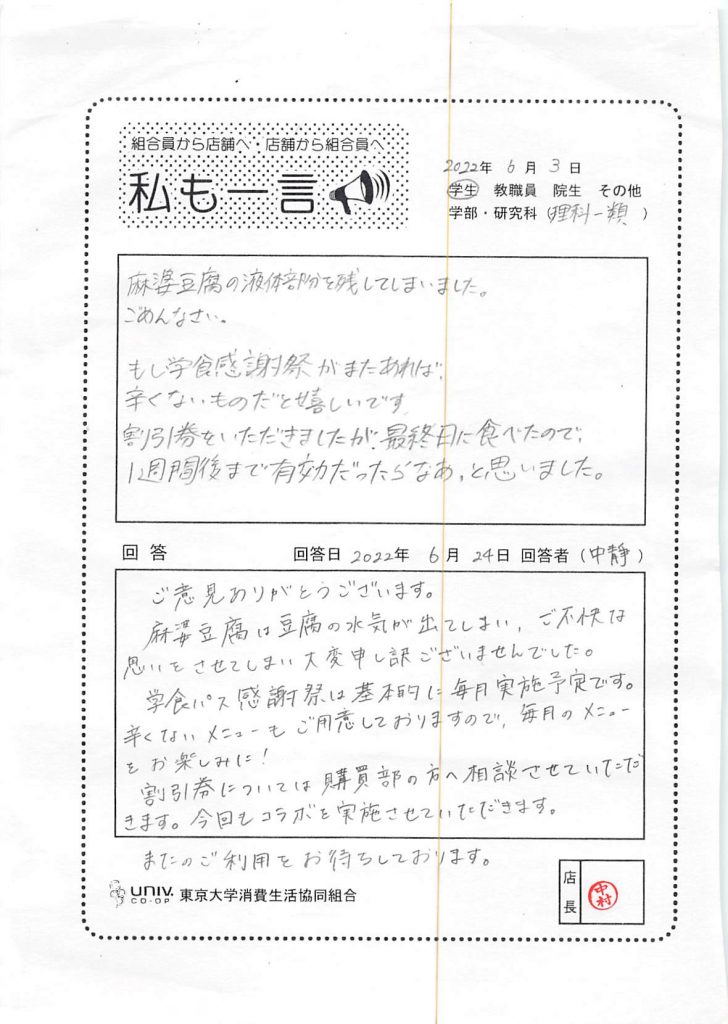 組合員から店舗へ・店舗から組合員へ
私も一言
2022年 6月 3日
学生 教職員 院生 その他
学部・研究科(理科一類)
麻婆豆腐の液体部分を残してしまいました。
ごめんなさい。
もし学食感謝祭がまたあれば、
辛くないものだと嬉しいです。
割引券をいただきましたが、最終日に食べたので、
1週間後まで有効だったらなあ、と思いました。
回答 回答日 2022年 6月 24日 回答者(中静)
ご意見ありがとうございます。
麻婆豆腐は豆腐の水気が出てしまい、ご不快な
思いをさせてしまい大変申し訳ございませんでした。
学食パス感謝祭は基本的に毎月実施予定です。
辛くないメニューもご用意しておりますので、毎月のメニュー
をお楽しみに!
割引券については購買部の方へ相談させていただ
きます。今回もコラボを実施させていただきます。
またのご利用をお待ちしております。
UNIV. CO-OP 東京大学消費生活協同組合
店長 中村